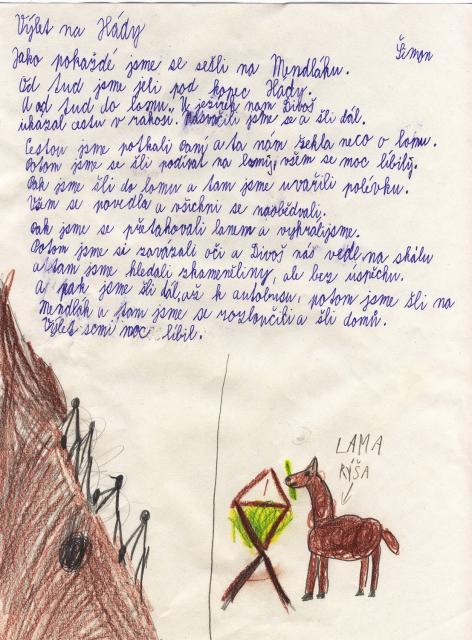 Výlet na Hády
Šimon
Jako pokaždé jsme se sešli na Mendláku.
Od tud jsme jeli pod kopec Hády.
A od tud do lomu. U jezírek nam Divoš
ukázal cestu v rákosí. jsme se a šli dál.
Cestou jsme potkali a ta nám řekla neco o lomu.
Potom jsme se šli podívat na lamy, všem se moc líbily.
Pak jsme šli do lomu a tam jsme uvařili polévku.
Všem se povedla a všichni se naobědvali.
pak jsme se přetahovali lanem a vyhráli jsme.
Potom jsme si zavázali oči a Divoš nás vedl na skálu
a tam jsme hledali zkameněliny, ale bez úspěchu.
A pak jsme šli dál, až k autobusu, potom jsme šli na
Mendlák a tam jsme se rozloučili a šli domů.
Výlet semi moc líbil.
LAMA
RÝŠA